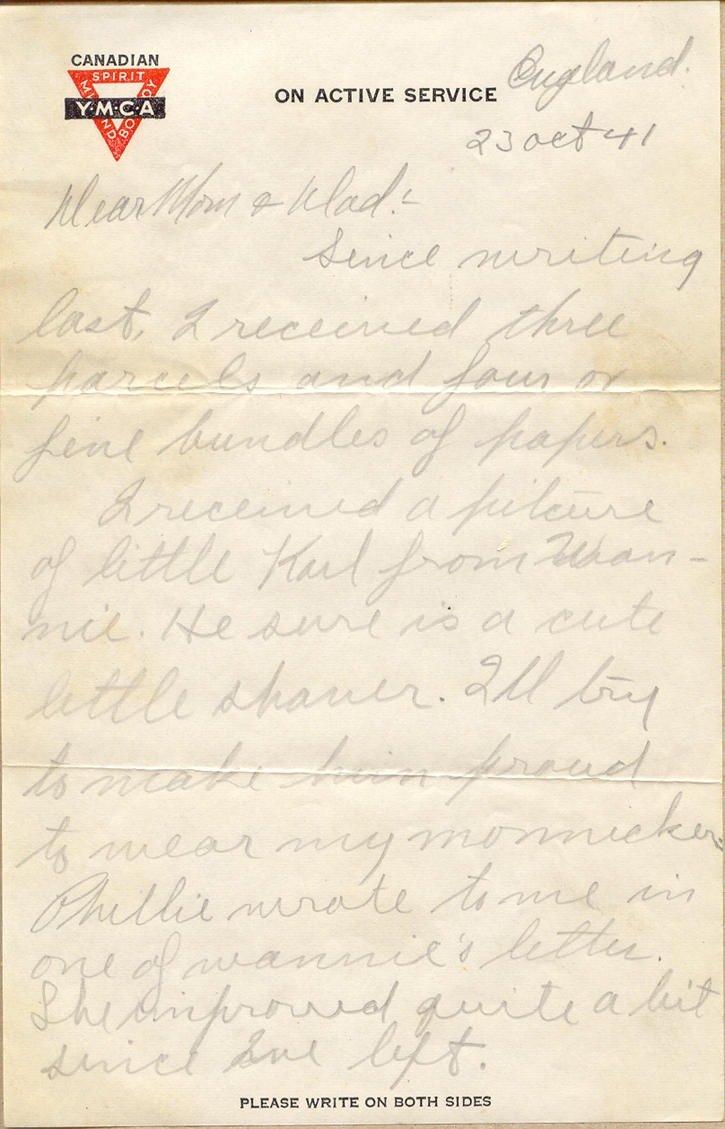 CANADIAN
SPIRIT
MIND
BODY
Y·M·C·A
ON ACTIVE SERVICE
England.
23 Oct 41
Dear Mom & Dad:-
Since writing
last, I received three
parcels and four or
five bundles of papers.
I received a picture
of little Karl from Wan-
nie. He sure is a cute
little shaver. I'll try
to make him proud
to wear my monnicker.
Phillie wrote to me in
one of wannie's letter.
She improved quite a bit
since I've left.
PLEASE WRITE ON BOTH SIDES